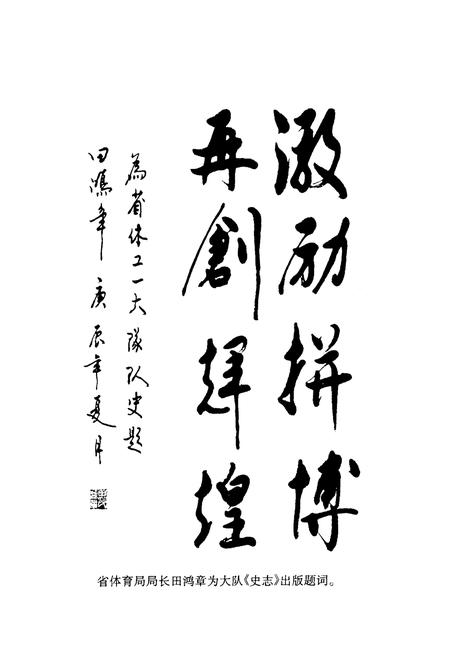 激励拼博
再創辉煌
为省体工一大隊队史题
田鸿章 庚辰年夏月
省体育局局长田鸿章为大队《史志》出版题词。